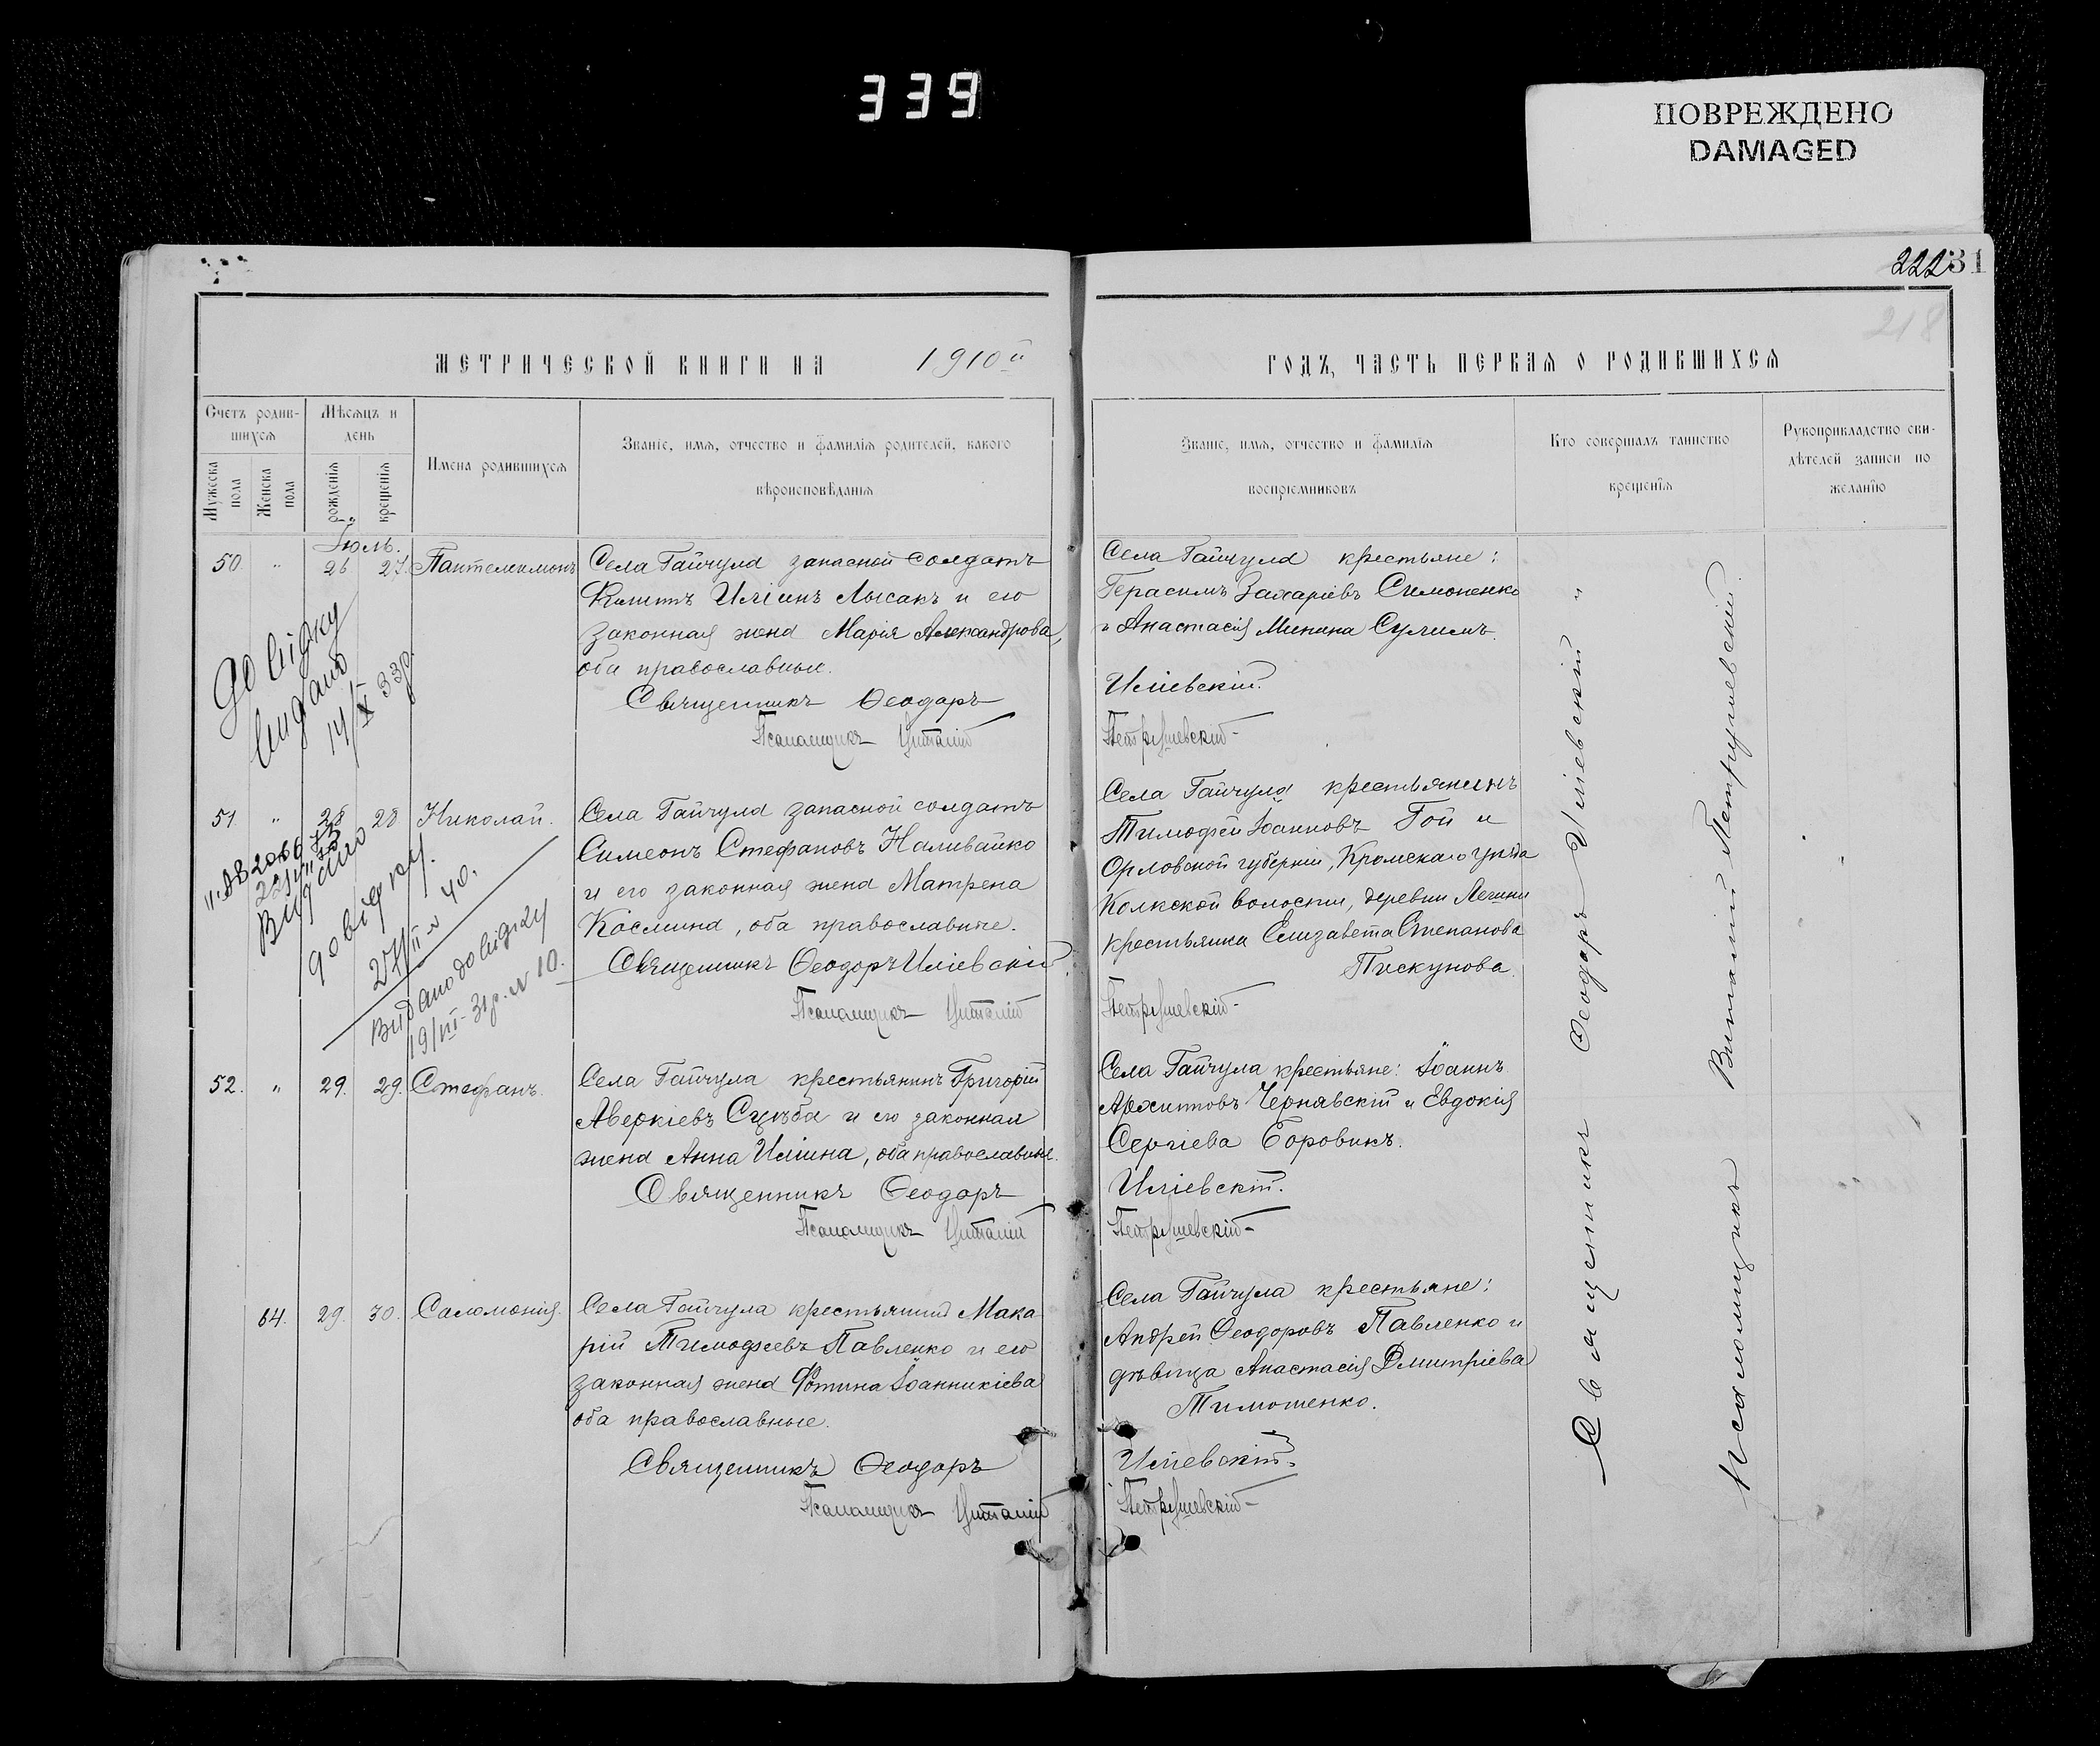 339
ПОВРЕЖДЕНО
DAMAGED
222 31
218
МЕТРИЧЕСКОЙ КНИГИ НА 1910й
ГОДЪ, ЧАСТЬ ПЕРВАЯ О РОДИВШИХСЯ
Счетъ родив-
шихся
Мужеска пола
Женска пола
Мѣсяцъ и
день
рожденія
крещенія
Имена родившихся
Званіе, имя, отчество и фамилія родителей, какого
вѣроисповѣданія
Званіе, имя, отчество и фамилія
воспріемниковъ
Кто совершалъ таинство
крещенія
Рукоприкладство сви-
дѣтелей записи по
желанію
Іюль.
50. " 26 27. Пантелеимонъ
Села Гайчула запасной солдатъ
Филиппъ Иліинъ Лысакъ и его
законная жена Марія Александрова,
оба православные.
Священникъ Ѳеодоръ
Псаломщикъ Виталій
Села Гайчула крестьяне:
Герасимъ Захаріевъ Симоненко
и Анастасія Минина Сулимъ.
Иліевскій.
Петрушевскій
до відку
видано
14/X 33р.
51 " 28 28 Николай.
Села Гайчула запасной солдатъ
Симеонъ Стефановъ Наливайко
и его законная жена Матрена
Космина, оба православные.
Священникъ Ѳеодоръ Иліевскій
Псаломщикъ Виталій
Села Гайчула крестьянинъ
Тимофей Іоанновъ Гой и
Орловской губерніи, Кромскаго уѣзда
волости, деревни
крестьянка Елизавета Степанова
Пискунова.
Петрушевскій
Видано
до відку.
27/II 40.
Видано до відку
19/III-31р. № 10.
52. " 29. 29. Стефанъ.
Села Гайчула крестьянинъ Григорій
Аверкіевъ Сцѣба и его законная
жена Анна Иліина, оба православные.
Священникъ Ѳеодоръ
Псаломщикъ Виталій
Села Гайчула крестьяне: Іоаннъ
Архиповъ Чернявскій и Евдокія
Сергіева Боровикъ.
Иліевскій.
Петрушевскій
64. 29. 30. Саломонія.
Села Гайчула крестьянинъ Мака
рій Тимофеевъ Павленко и его
законная жена Фотина Іоанникіева
оба православные.
Священникъ Ѳеодоръ
Псаломщикъ Виталій
Села Гайчула крестьяне:
Андрей Ѳеодоровъ Павленко и
дѣвица Анастасія Димитріева
Тимошенко.
Иліевскій.
Петрушевскій
Священникъ Ѳеодоръ Иліевскій
Псаломщикъ Виталій Петрушевскій